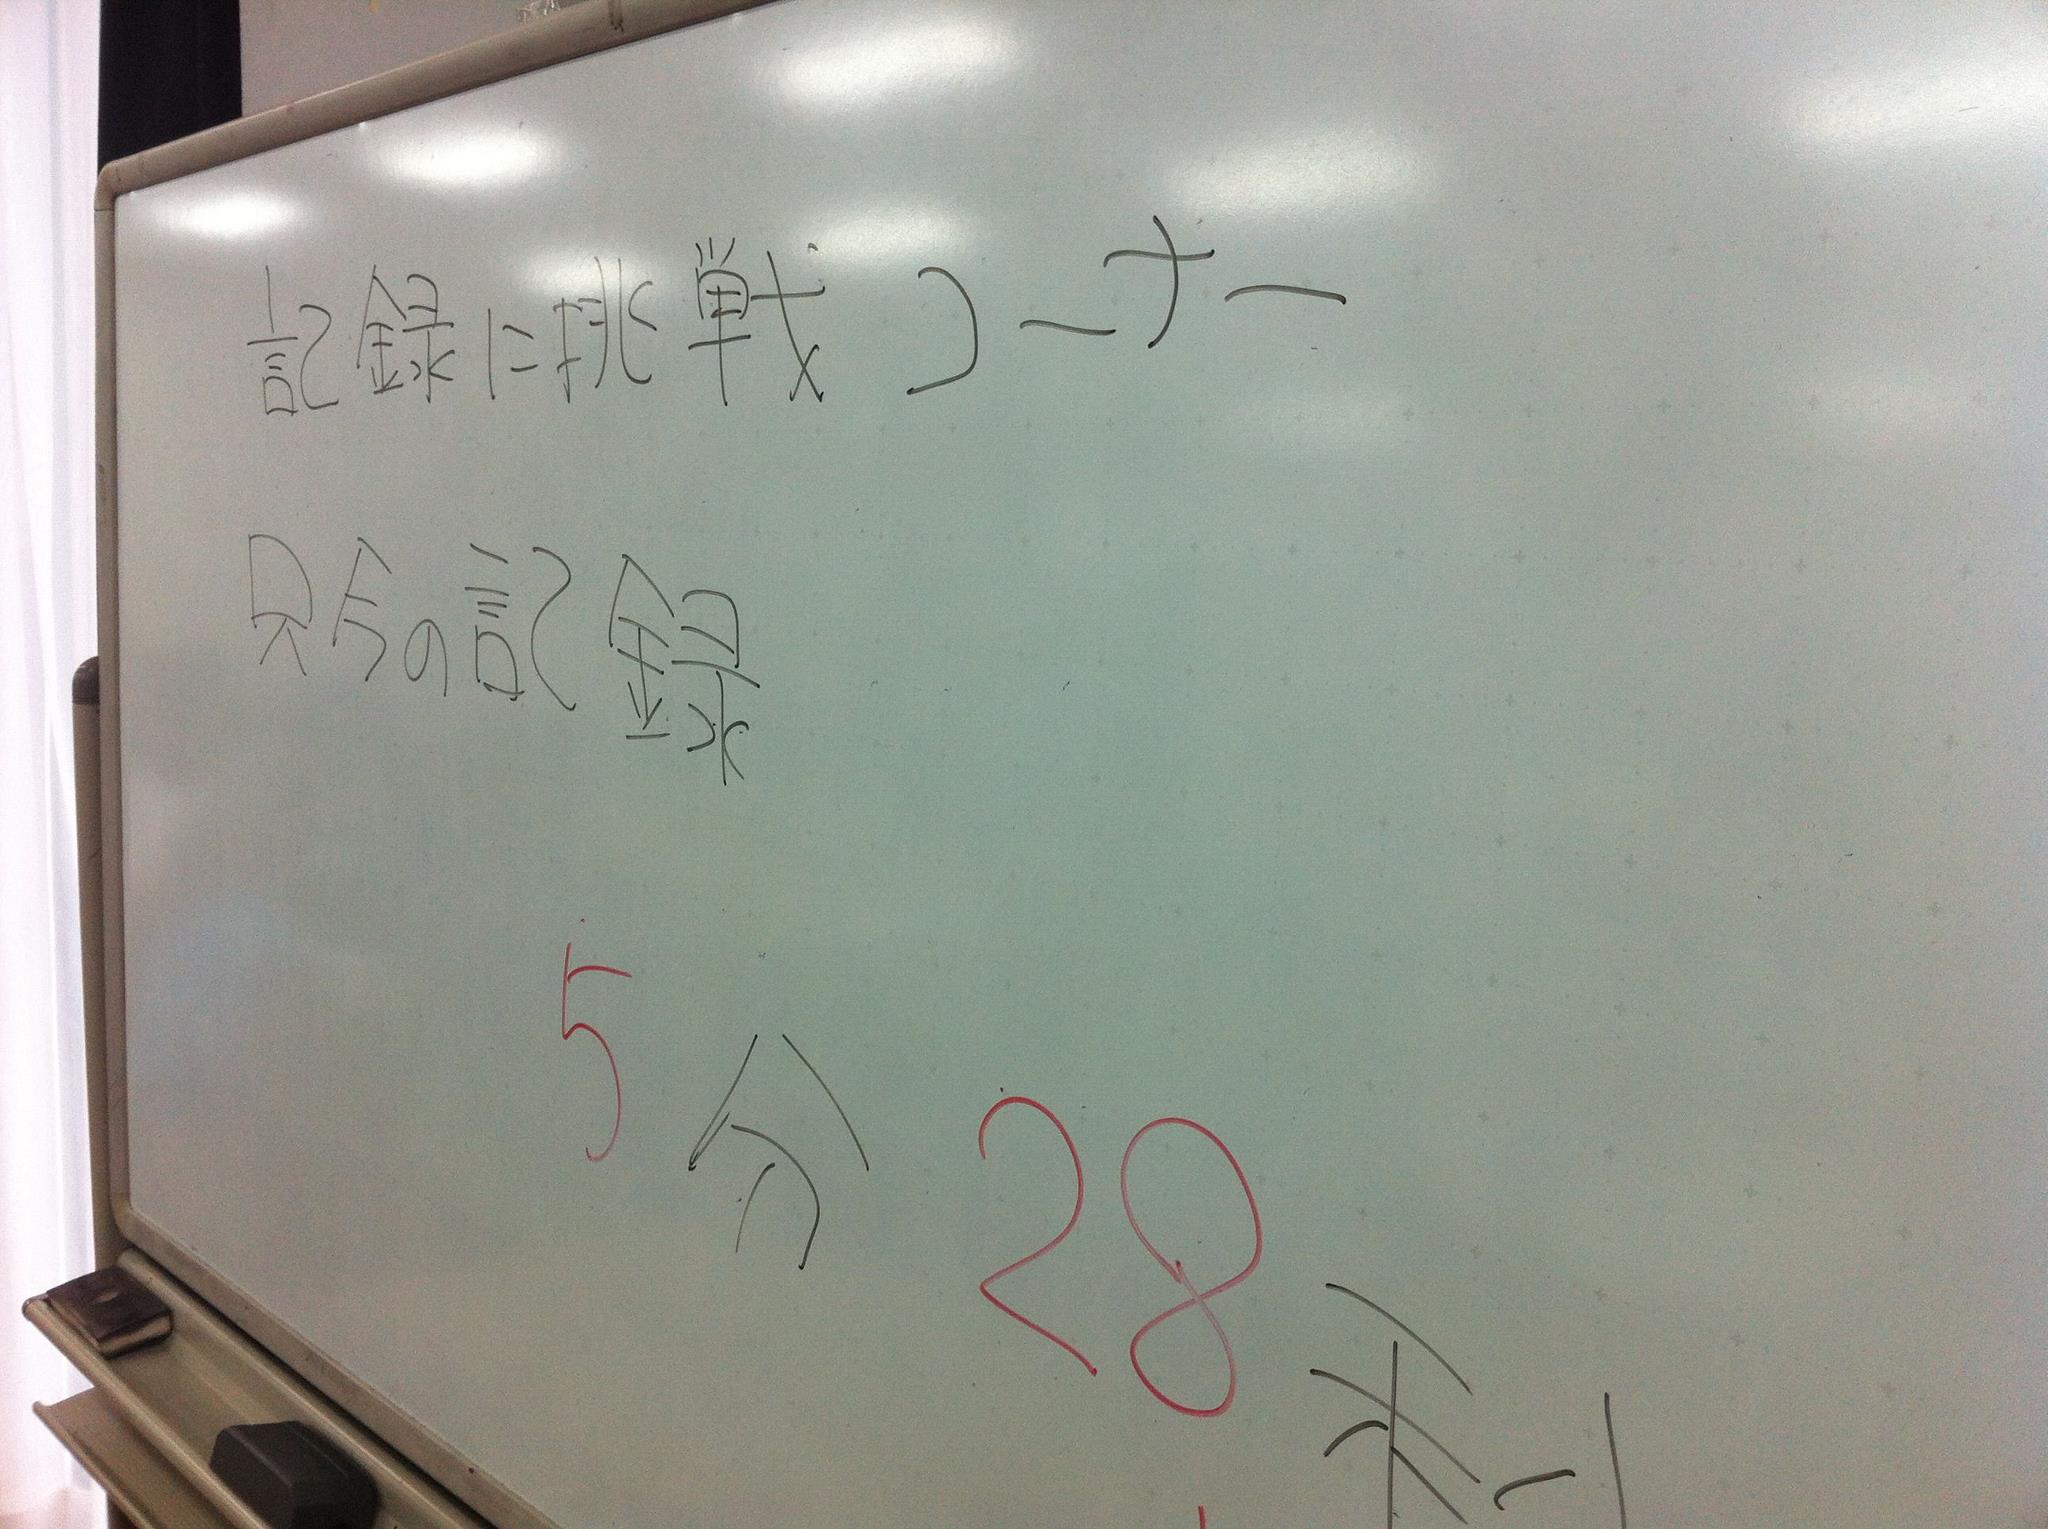 記録に挑戦コーナー
只今の記録
5分28秒